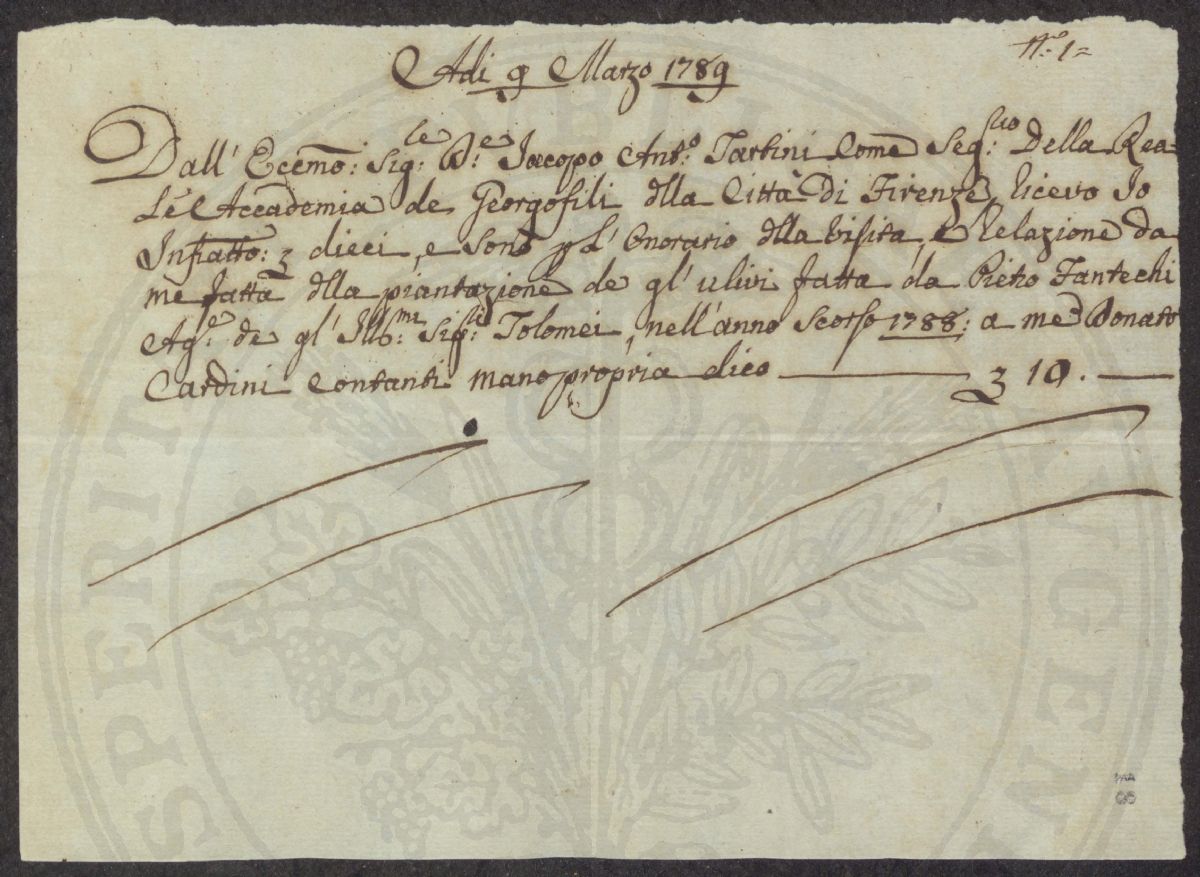 N.o 1=
Adi 9 Marzo 1789
Dall' Ecemo: Sig:le D:e Jacopo Ant:o Tartini Come Seg:rio Della Rea=
Le Accademia de Georgofili dlla Città Di Firenze, ricevo Jo
Infratto: dieci, e sono p L' Onorario dlla Visita, e Relazione da
me fatta dlla piantazione de gl' ulivi fatta da Pietro Fantechi
Ag:e de gl' Ill:mi Sig:ri Tolomei, nell' anno Scorso 1788: a me Donato
Cardini Contanti mano propria dico 10.
PERIT